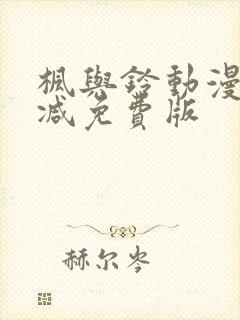 楓與鈴動漫
減免費版
赫尔岑